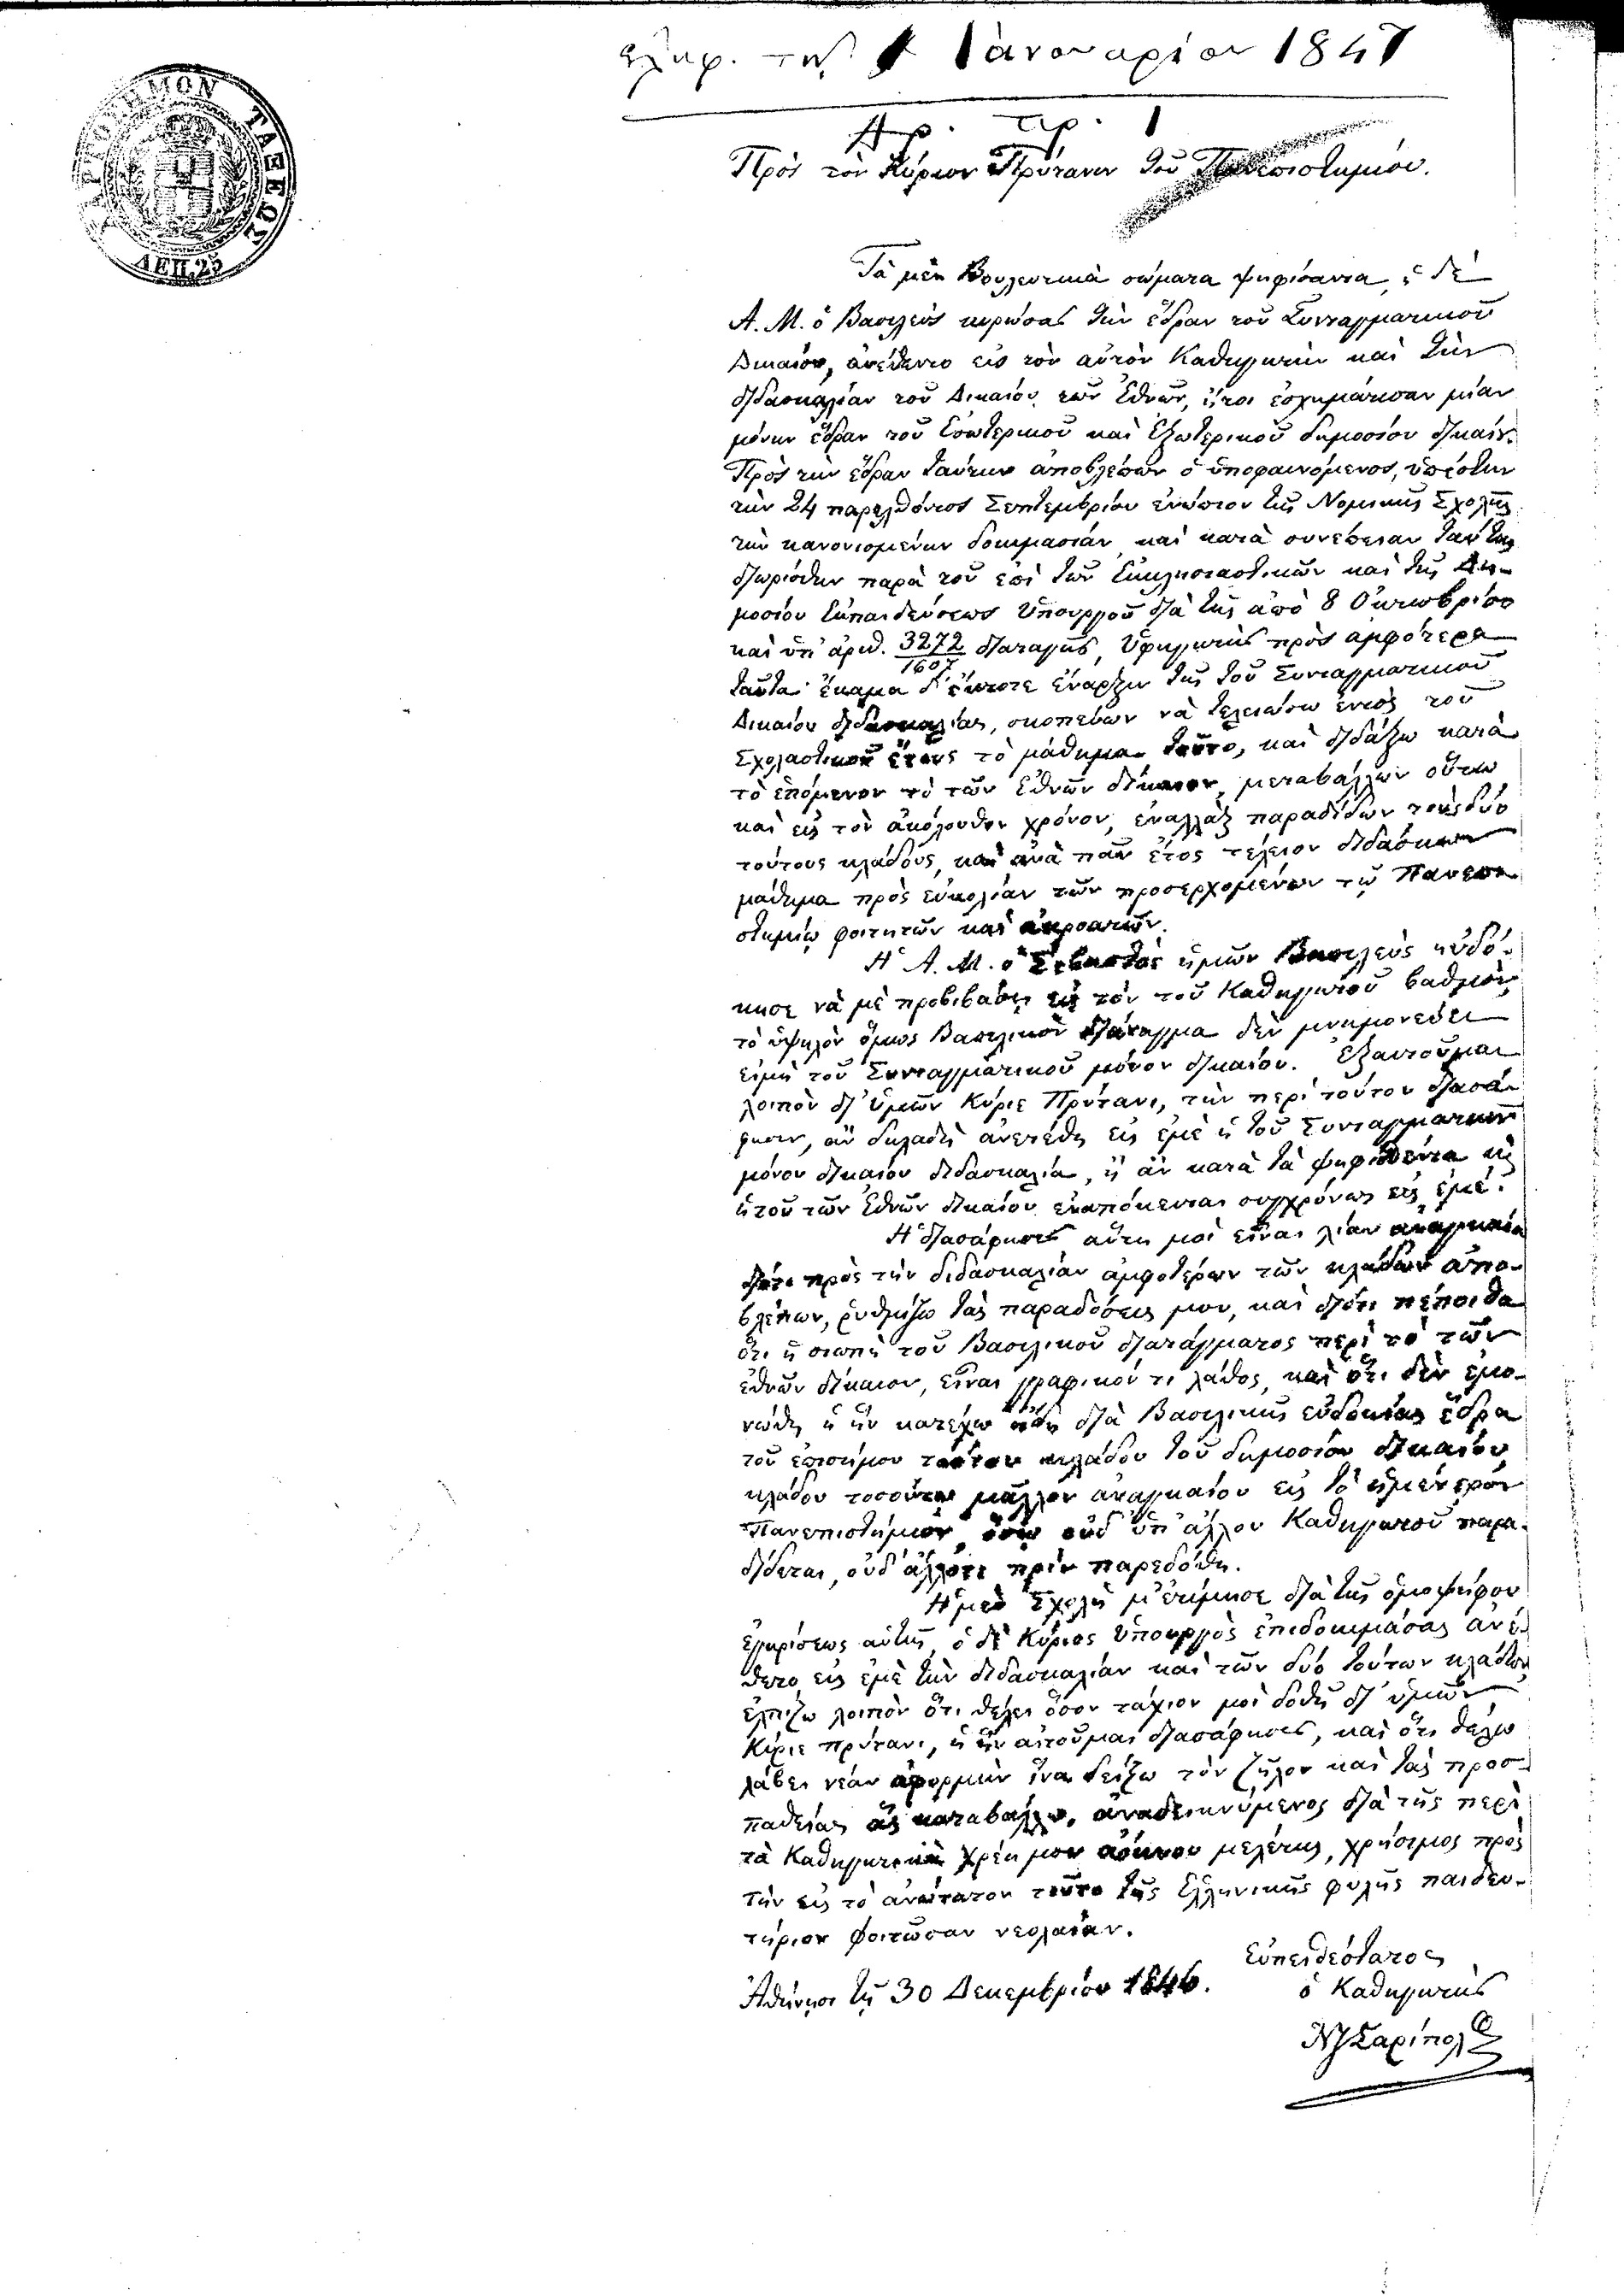 ἐλήφ. τῇ 1 Ἰανουαρίου 1847
Ἀρ. πρ. 1
ΧΑΡΤΟΣΗΜΟΝ ΤΑΞΕΩΣ
ΛΕΠ. 25
Πρὸς τὸν Κύριον Πρύτανιν τοῦ Πανεπιστημίου.
Τὰ μὲν Βουλευτικὰ σώματα ψηφίσαντα, ἡ δὲ
Α. Μ. ὁ Βασιλεὺς κυρώσας τὴν ἕδραν τοῦ Συνταγματικοῦ
Δικαίου, ἀνέθεντο εἰς τὸν αὐτὸν Καθηγητὴν καὶ τὴν
διδασκαλίαν τοῦ Δικαίου τῶν Ἐθνῶν, ἤτοι ἐσχημάτισαν μίαν
μόνην ἕδραν τοῦ Ἐσωτερικοῦ καὶ Ἐξωτερικοῦ δημοσίου δικαίου.
Πρὸς τὴν ἕδραν ταύτην ἀποβλέπων ὁ ὑποφαινόμενος, ὑπέστην
τὴν 24 παρελθόντος Σεπτεμβρίου ἐνώπιον τῆς Νομικῆς Σχολῆς
τὴν κανονισμένην δοκιμασίαν, καὶ κατὰ συνέπειαν ταύτης
διωρίσθην παρὰ τοῦ ἐπὶ τῶν Ἐκκλησιαστικῶν καὶ τῆς Δη-
μοσίου Ἐκπαιδεύσεως Ὑπουργοῦ διὰ τῆς ἀπὸ 8 Ὀκτωβρίου
καὶ ὑπ' ἀριθ. 3272/1607 διαταγῆς, Ὑφηγητὴς πρὸς ἀμφότερα
ταῦτα· ἔκαμα δ' ἔκτοτε ἔναρξιν τῆς τοῦ Συνταγματικοῦ
Δικαίου διδασκαλίας, σκοπεύων νὰ τελειώσω ἐντὸς τοῦ
Σχολαστικοῦ ἔτους τὸ μάθημα τοῦτο, καὶ διδάξω κατὰ
τὸ ἑπόμενον τὸ τῶν Ἐθνῶν δίκαιον, μεταβάλλων οὕτω
καὶ εἰς τὸν ἀκόλουθον χρόνον, ἐναλλὰξ παραδίδων τοὺς δύο
τούτους κλάδους, καὶ ἀνὰ πᾶν ἔτος τέλειον διδάσκων
μάθημα πρὸς εὐκολίαν τῶν προσερχομένων τῷ Πανεπι
στημίῳ φοιτητῶν καὶ ἀκροατῶν.
Ἡ Α. Μ. ὁ Σεβαστὸς ἡμῶν Βασιλεὺς ηὐδό-
κησε νὰ μὲ προβιβάσῃ εἰς τὸν τοῦ Καθηγητοῦ βαθμόν·
τὸ ὑψηλὸν ὅμως Βασιλικὸν διάταγμα δὲν μνημονεύει
εἰμὴ τοῦ Συνταγματικοῦ μόνον δικαίου. Ἐξαιτοῦμαι
λοιπὸν δι' ὑμῶν Κύριε Πρύτανι, τὴν περὶ τούτου διασά-
φησιν, ἂν δηλαδὴ ἀνετέθη εἰς ἐμὲ ἡ τοῦ Συνταγματικοῦ
μόνου δικαίου διδασκαλία, ἢ ἂν κατὰ τὰ ψηφισθέντα κὶ
ἡ τοῦ τῶν Ἐθνῶν δικαίου ἐναπόκειται συγχρόνως εἰς ἐμέ.
Ἡ διασάφησις αὕτη μοὶ εἶναι λίαν ἀναγκαία
διότι πρὸς τὴν διδασκαλίαν ἀμφοτέρων τῶν κλάδων ἀπο-
βλέπων, ῥυθμίζω τὰς παραδόσεις μου, καὶ διότι πέποιθα
ὅτι ἡ σιωπὴ τοῦ Βασιλικοῦ διατάγματος περὶ τὸ τῶν
ἐθνῶν δίκαιον, εἶναι γραφικόν τι λάθος, καὶ ὅτι δὲν ἐμο-
νώθη ἡ ἣν κατέχω ἤδη διὰ Βασιλικῆς εὐδοκίας ἕδρα
τοῦ ἐπισήμου τούτου κλάδου τοῦ δημοσίου δικαίου
κλάδου τοσούτῳ μᾶλλον ἀναγκαίου εἰς τὸ ἡμέτερον
Πανεπιστήμιον, ὅσῳ οὐδ' ὑπ' ἄλλου Καθηγητοῦ παρα-
δίδεται, οὐδ' ἄλλοτε πρὶν παρεδόθη.
Ἡ μὲν Σχολὴ μ' ἐτίμησε διὰ τῆς ὁμοψήφου
ἐγκρίσεως αὐτῆς, ὁ δὲ Κύριος Ὑπουργὸς ἐπιδοκιμάσας ἀνέ-
θετο εἰς ἐμὲ τὴν διδασκαλίαν καὶ τῶν δύο τούτων κλάδων
ἐλπίζω λοιπὸν ὅτι θέλει ὅσον τάχιον μοὶ δοθῆ δι' ὑμῶν,
Κύριε πρύτανι, ἡ ἣν αἰτοῦμαι διασάφησις, καὶ ὅτι θέλω
λάβει νέαν ἀφορμὴν ἵνα δείξω τὸν ζῆλον καὶ τὰς προσ-
παθείας ἃς καταβάλλω, ἀναδεικνύμενος διὰ τῆς περὶ
τὰ Καθηγητικὰ χρέη μου ἀόκνου μελέτης, χρήσιμος πρὸς
τὴν εἰς τὸ ἀνώτατον τοῦτο τῆς Ἑλληνικῆς φυλῆς παιδευ-
τήριον φοιτῶσαν νεολαίαν.
Εὐπειθέστατος
Ἀθήνησι τῇ 30 Δεκεμβρίου 1846.
ὁ Καθηγητὴς
ΝΙΣαρίπολος